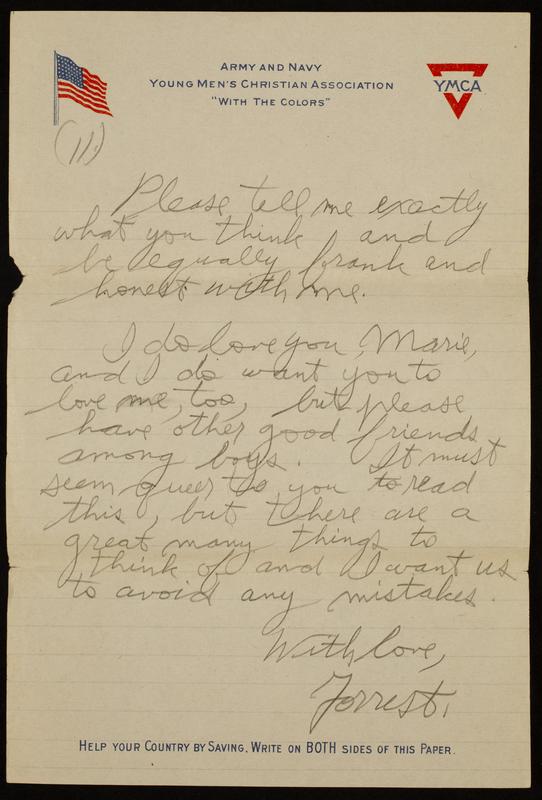 ARMY AND NAVY
YOUNG MEN'S CHRISTIAN ASSOCIATION
"WITH THE COLORS"
YMCA
(11)
Please tell me exactly
what you think, and
be equally frank and
honest with me.
I do love you, Marie,
and I do want you to
love me, too, but please
have other good friends
among boys. It must
seem queer to you to read
this, but there are a
great many things to
think of and I want us
to avoid any mistakes.
With love,
Forrest.
HELP YOUR COUNTRY BY SAVING. WRITE ON BOTH SIDES OF THIS PAPER.